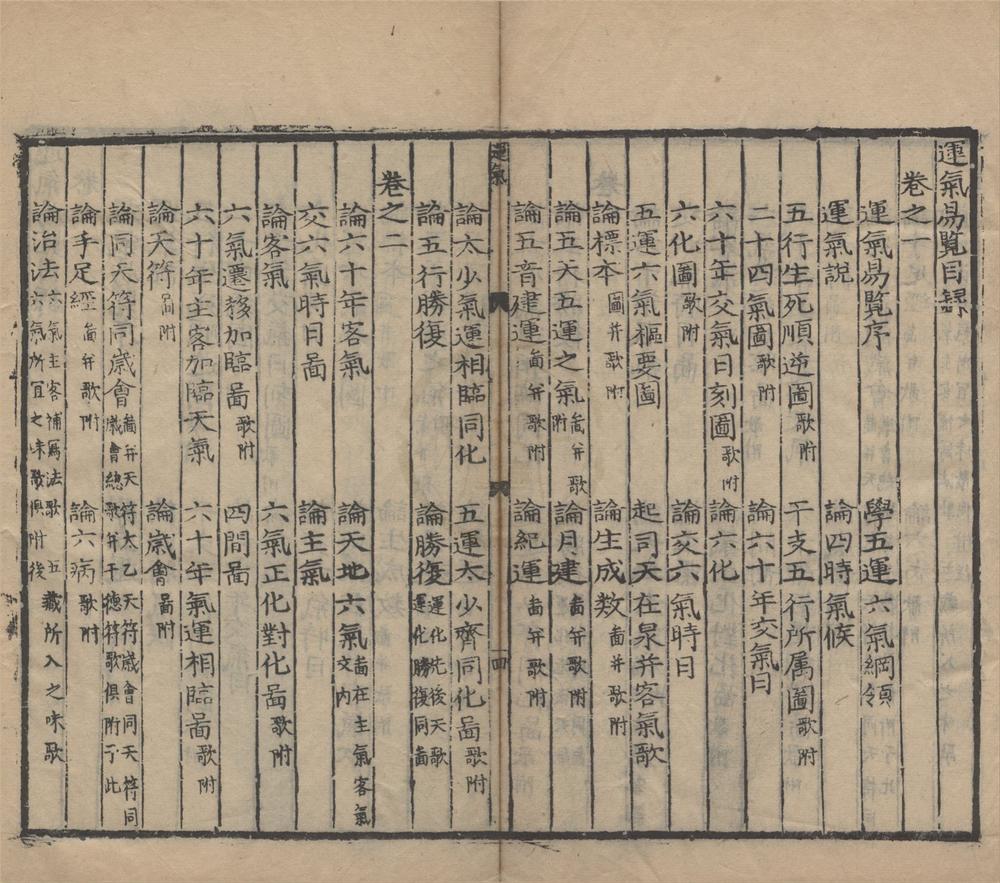 運氣易覽目録
卷之一
運氣易覽序 學五運六氣綱領
運氣說 論四時氣候
五行生死順逆圖歌附 干支五行所属圖歌附
二十四氣圖歌附 論六十年交氣日
六十年交氣日刻圖歌附 論六化
六化圖歌附 論交六氣時日
五運六氣樞要圖 起司天在泉并客氣歌
論標本圖并歌附 論生成数啚并歌附
論五天五運之氣啚并歌附 論月建啚并歌附
論五音建運啚并歌附 論紀運啚并歌附
運氣 四
論太少氣運相臨同化 五運太少齊同化啚歌附
論五行勝復 論勝復運化先後天歌運化勝復同啚
卷之二
論六十年客氣 論天地六氣啚在主氣客氣文内
交六氣時日啚 論主氣
論客氣 六氣正化對化啚歌附
六氣遷移加臨啚歌附 四間啚
六十年主客加臨天氣 六十年氣運相臨啚歌附
論天符啚附 論歲會啚附
論同天符同歲會啚并天符太乙天符歲會同天符同歲會總歌并干德符歌俱附于此
論手足經啚并歌附 論六病歌附
論治法六氣主客補瀉法歌 五藏所入之味歌六氣所宜之味歌俱附後